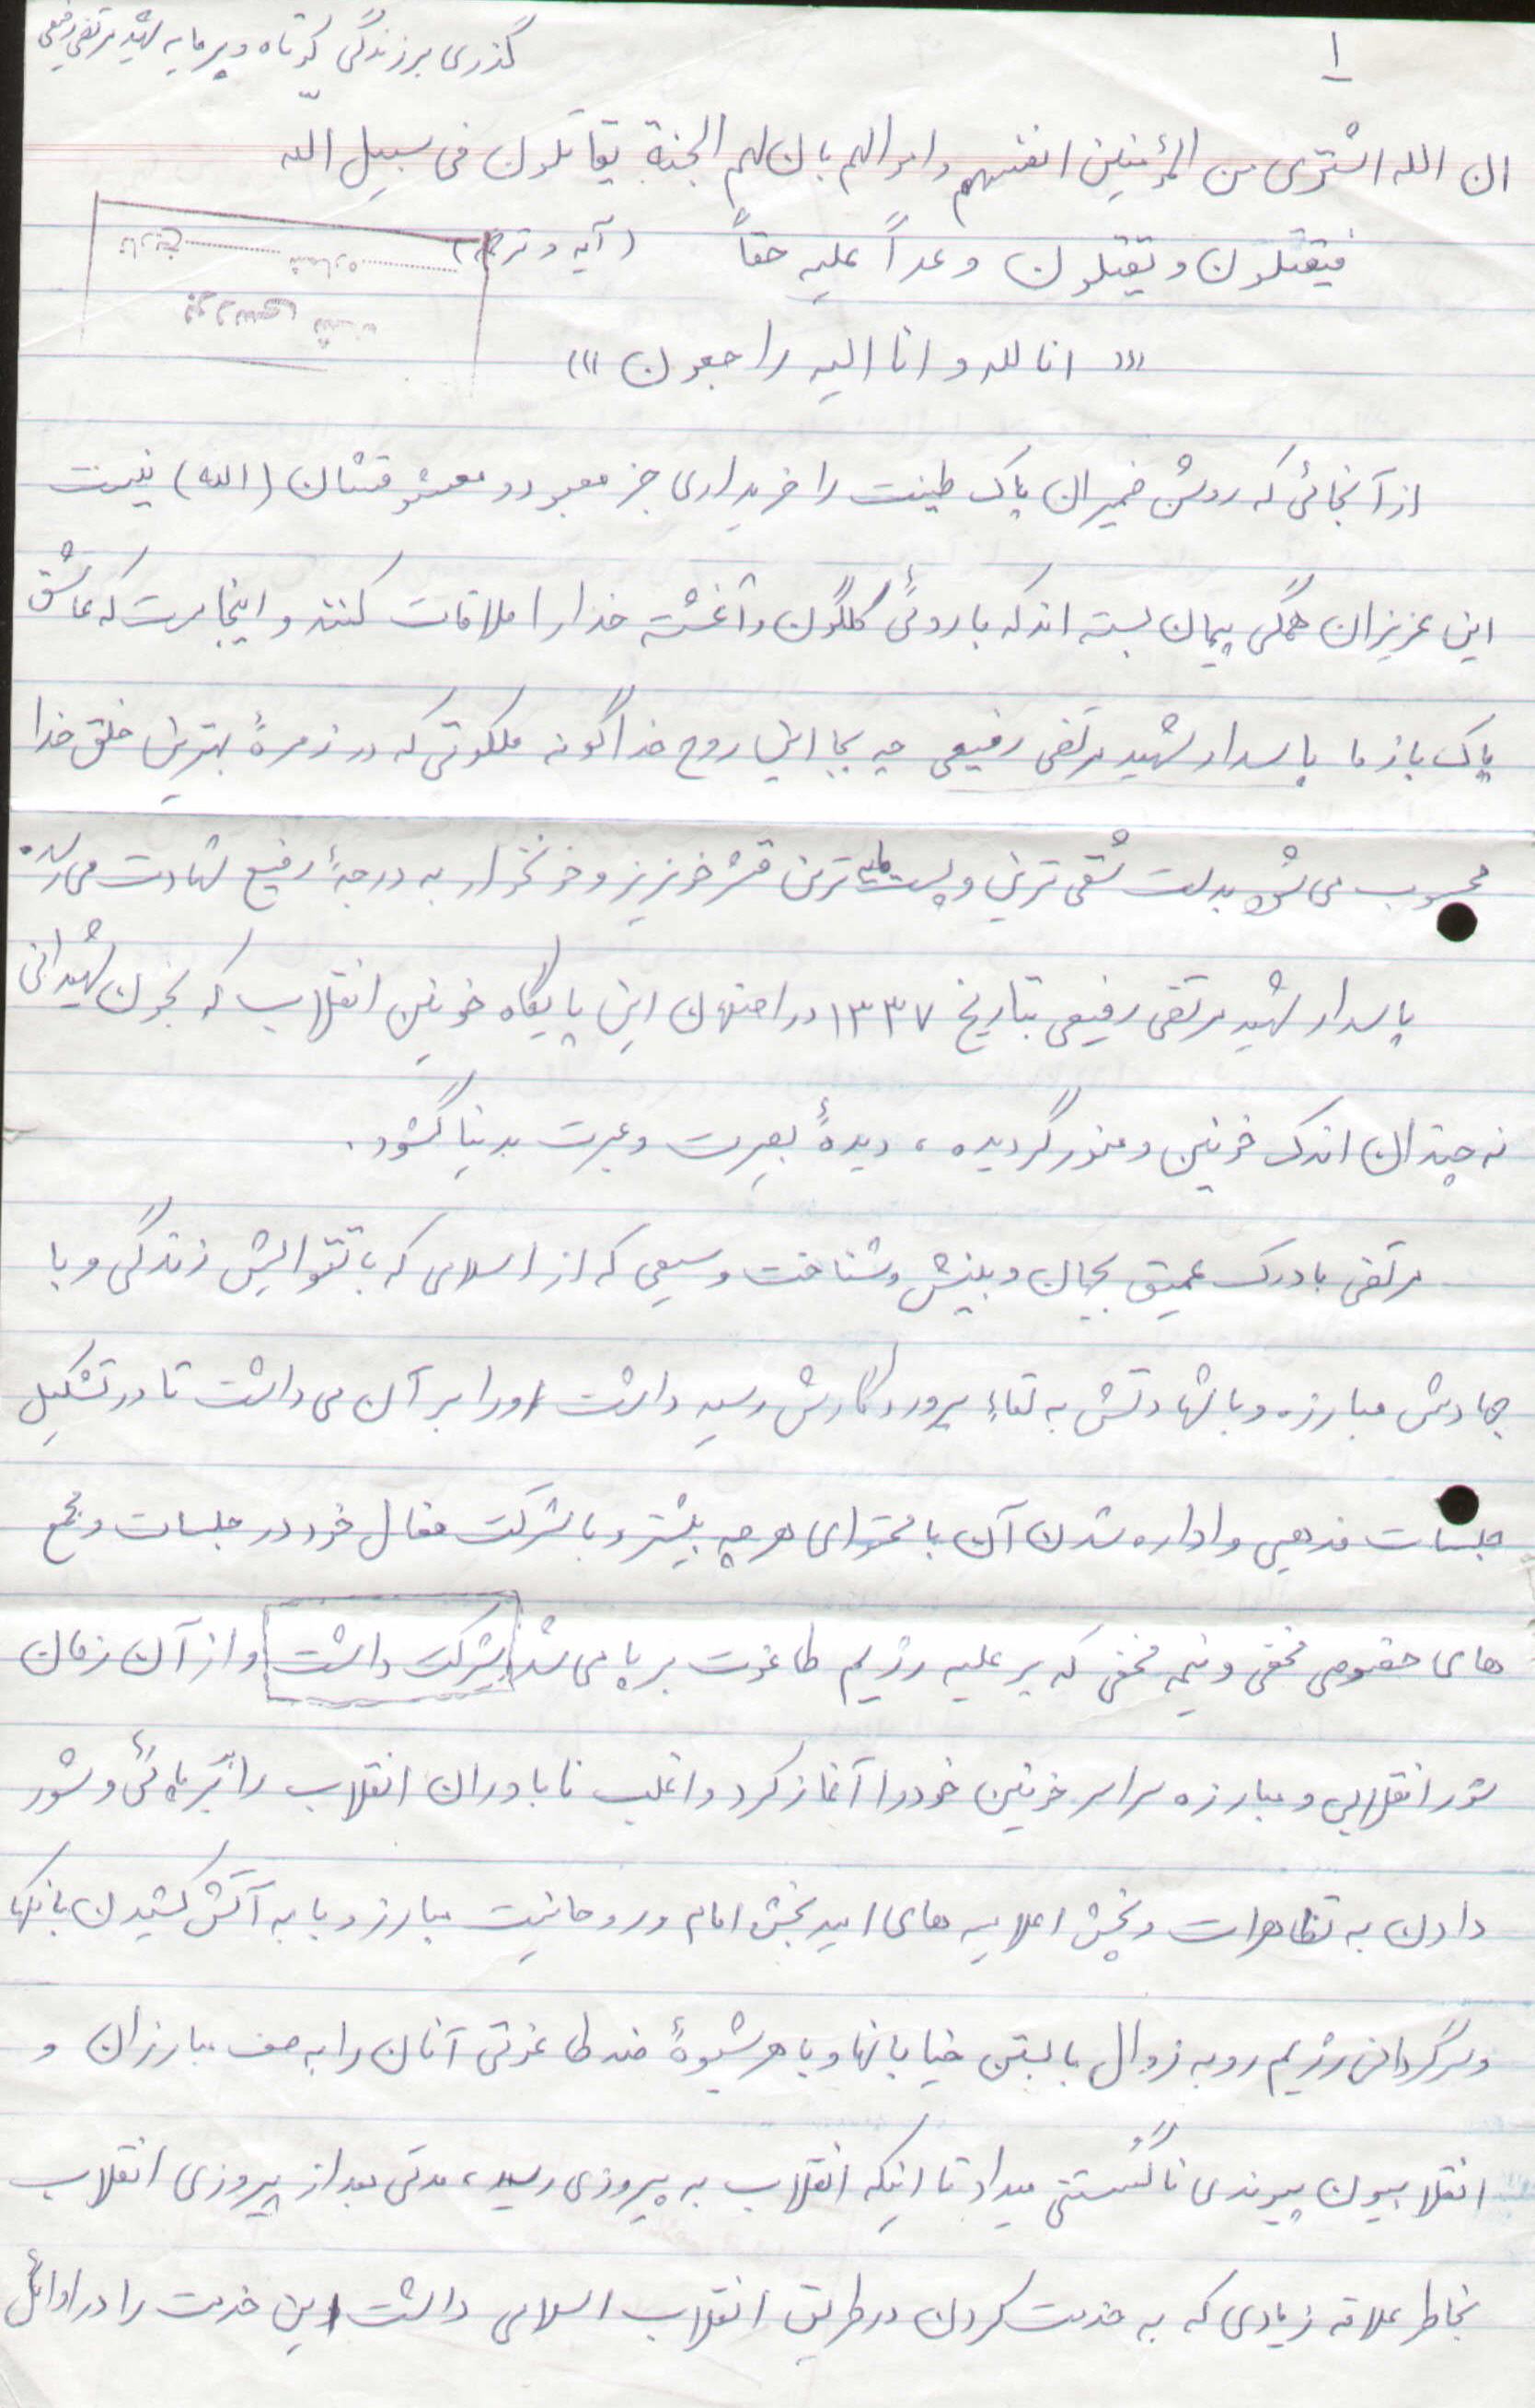 ۱
گذری بر زندگی کوتاه و پرمایه شهید مرتضی رفیعی
ان الله اشتری من المؤمنین انفسهم و اموالهم بان لهم الجنة یقاتلون فی سبیل الله
فیقتلون و یقتلون وعداً علیه حقاً (آیه و ترجمه)
شماره تاریخ
((( انا لله و انا الیه راجعون )))
از آنجائی که روشن ضمیران پاک طینت را خریداری جز معبود و معشوقشان (الله) نیست
این عزیزان همگی پیمان بسته اند که با روئی گلگون و آغشته خدا را ملاقات کنند و اینجاست که عاشق
پاک باز ما پاسدار شهید مرتضی رفیعی چه بجا این روح خداگونه ملکوتی که در زمرهٔ بهترین خلق خدا
محسوب می شود بدست شقی ترین و پست مایه ترین قشر خونریز و خونخوار به درجهٔ رفیع شهادت می رسد.
پاسدار شهید مرتضی رفیعی بتاریخ ۱۳۳۷ در اصفهان این پایگاه خونین انقلاب که بخون شهیدانی
نه چندان اندک خونین و منور گردیده، دیدهٔ بصیرت و عبرت بدنیا گشود.
مرتضی با درک عمیق بجهان و بینش و شناخت وسیعی که از اسلامی که با تقوایش زندگی و با
جهادش مبارزه و با شهادتش به لقاء پروردگارش رسید داشت او را بر آن می داشت تا در تشکیل
جلسات مذهبی و اداره شدن آن با محتوای هر چه بیشتر و با شرکت فعال خود در جلسات و مجمع
های خصوصی مخفی و نیمه مخفی که بر علیه رژیم طاغوت بر پا می شد شرکت داشت و از آن زمان
شور انقلابی و مبارزه سراسر خونین خود را آغاز کرد و اغلب ناباوران انقلاب را با برپائی و شور
دادن به تظاهرات و پخش اعلامیه های امید بخش امام و روحانیت مبارز و با به آتش کشیدن بانکها
و سرگردانی رژیم رو به زوال با بستن خیابانها و با هر شیوهٔ ضد طاغوتی آنان را به صف مبارزان و
انقلابیون پیوندی ناگسستنی میداد تا اینکه انقلاب به پیروزی رسید، مدتی بعد از پیروزی انقلاب
بخاطر علاقه زیادی که به خدمت کردن در طریق انقلاب اسلامی داشت این خدمت را در اوائل